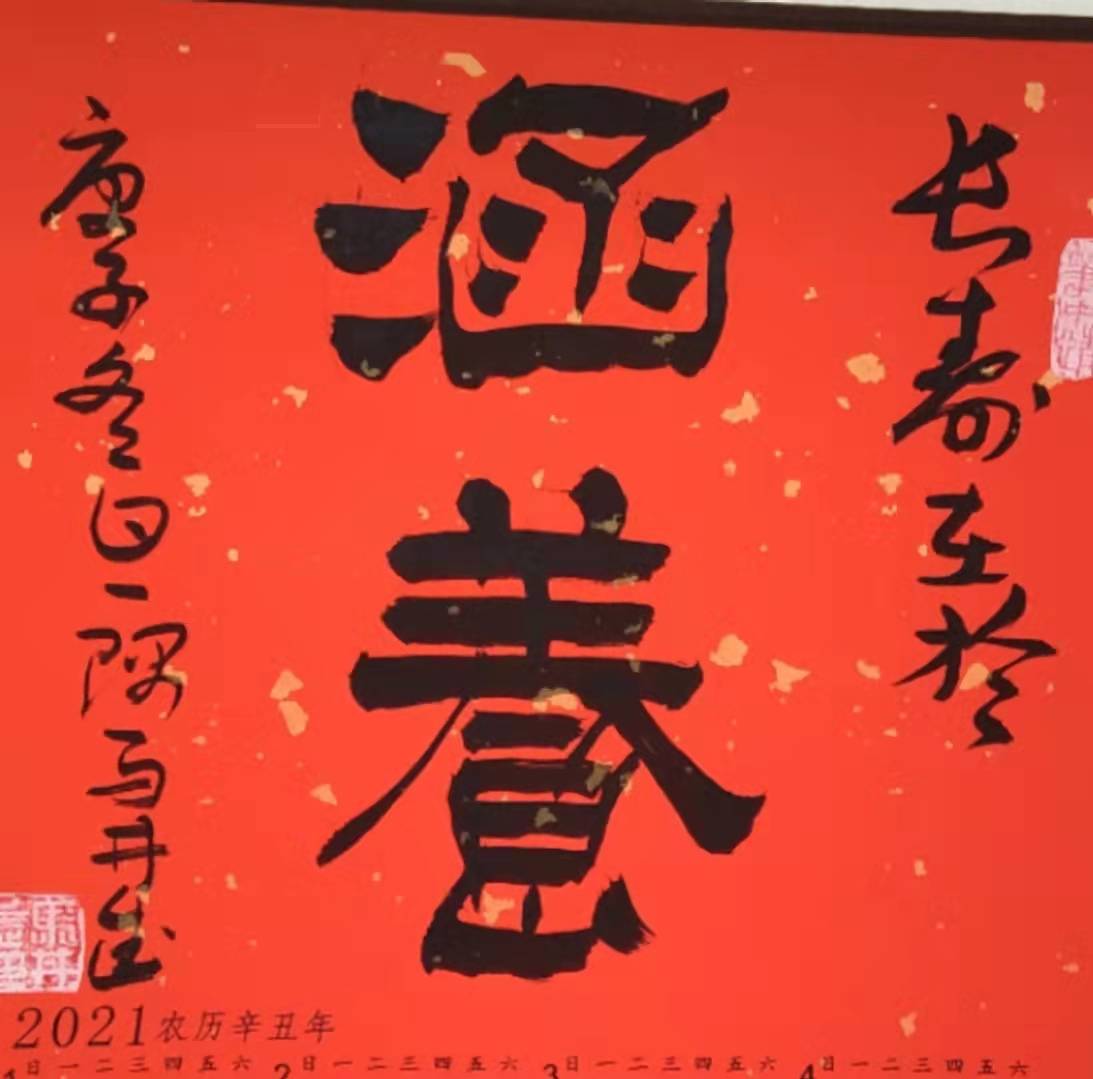 长寿在於
涵養
庚子冬日一隅马井
2021农历辛丑年
1日一二三四五六 2日一二三四五六 3日一二三四五六 4日一二三四五六